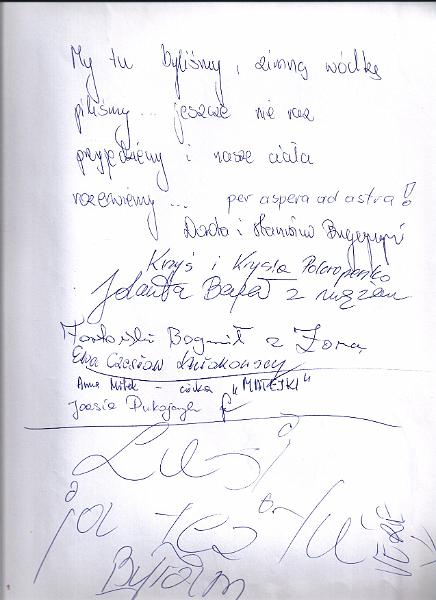 My tu byliśmy, zimną wódkę
piliśmy... jeszcze nie raz
przyjedziemy i nasze ciała
rozerwiemy... per aspera ad astra!
Dorota i Stanisław
Krzyś i Krysia
Jolanta z mężem
Bogumił z Żoną
Ewa Czesław
Anna Mitek - córka "MATEJKI"
Joasia
Lusi
ja też tu
Byłam